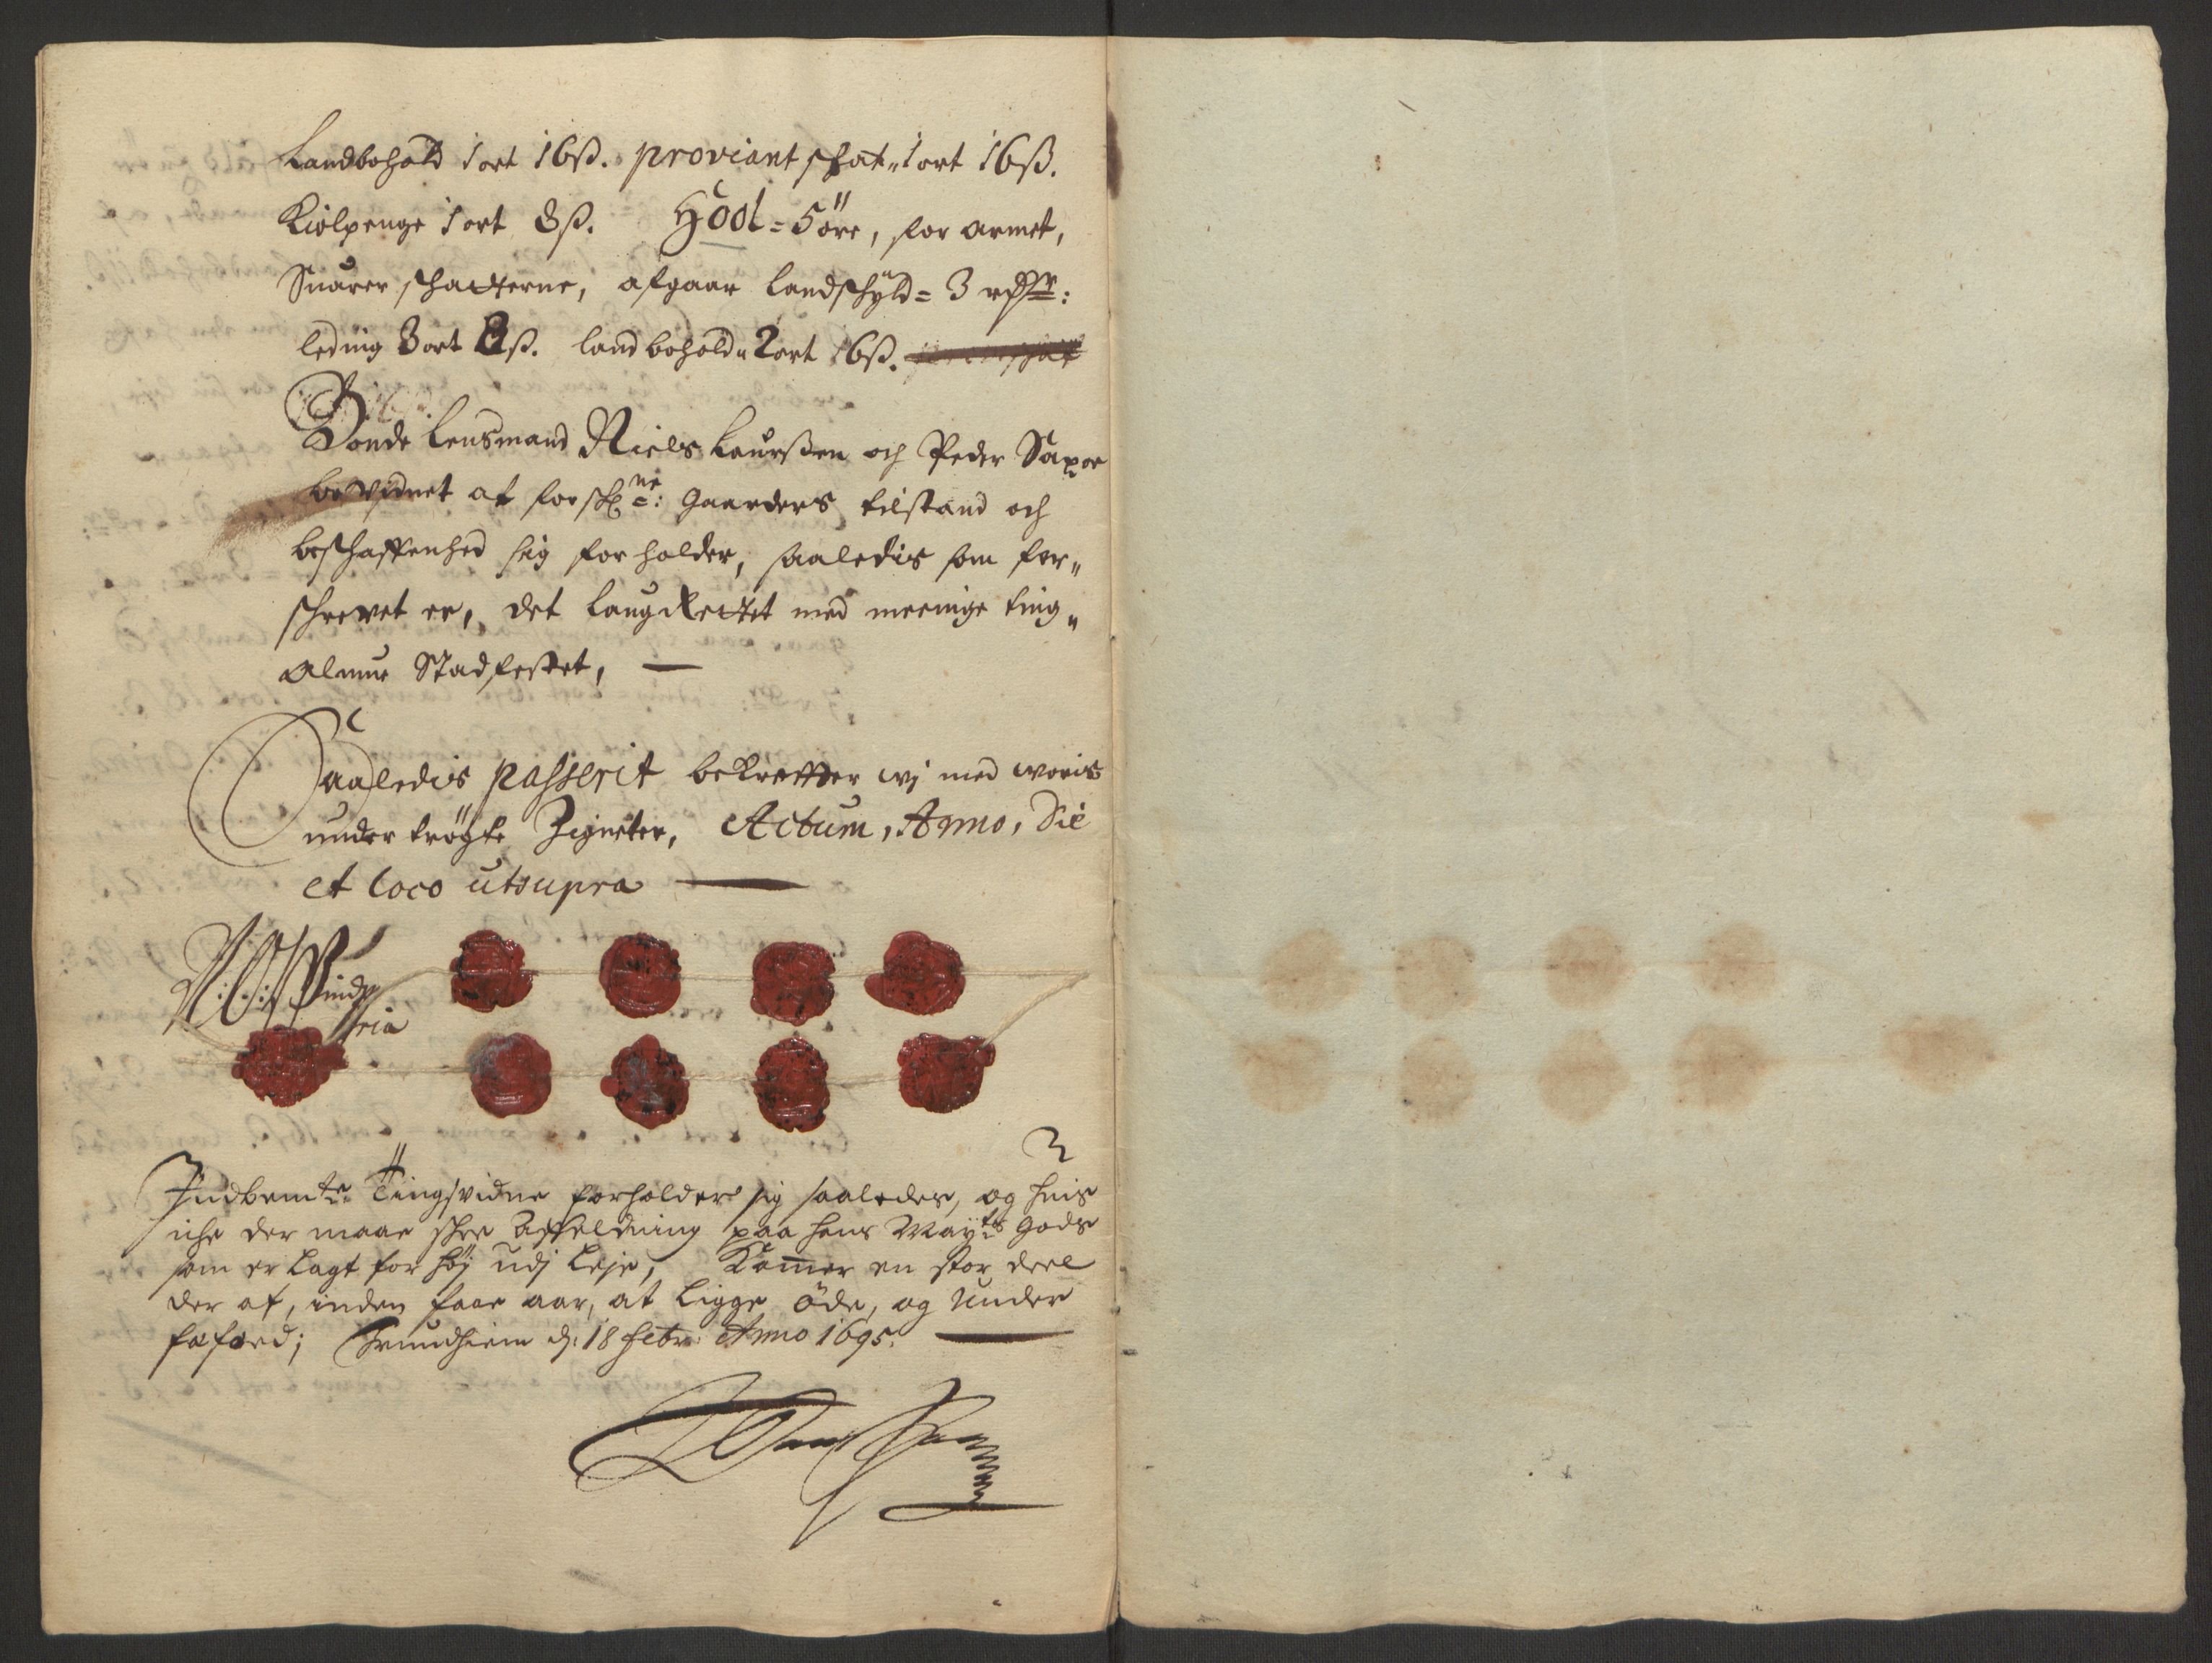 Landbohold 1 ort 16 ß. proviant skat „ 1 ort 16 ß.
Kiølpenge 1 ort 8 ß. Hool = 5 öre, for armet,
Suarer skatterne, afgaar Landskÿld = 3 rdr:
leding 3 ort 8 ß. landbohold „ 2 ort 16 ß.
Bonde Lensmand Niels Laurßen och Peder Saxe
bevidnet at forschne: gaarders tilstand och
beskaffenhed sig forholder, saaledis som for„
schrevet er, det Laugrettet med meenige ting„
Almue Stadfestet, —
Saaledis passerit bekreffter wj med woris
undertrögte Zigneter, Actum, Anno, Die
et loco utsupra —
Indbemte Tingsvidne forholder sig saaledes, og hvis
iche der maae schee affeldning paa hans Mayts gods
som er lagt for høj udj leje, Kom̄er en stor deel
der af, inden faae aar, at ligge öde, og under
fæfoed; Trundhiem d: 18 febr: Anno 1695. —